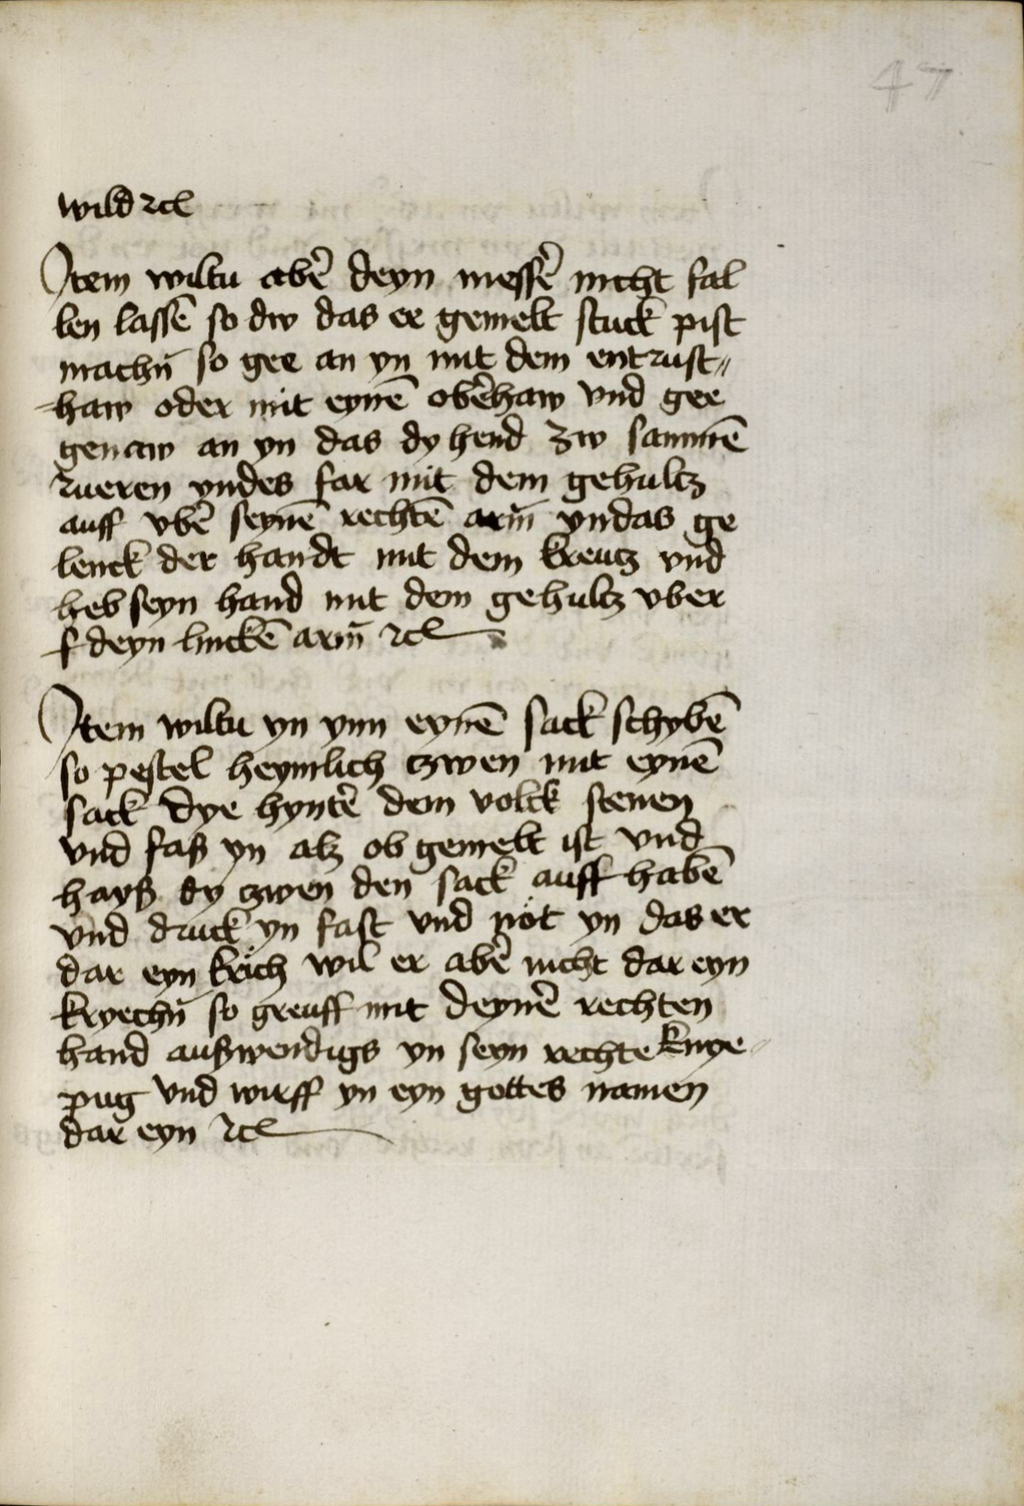 47
wild ꝛcͣ
Item wiltu abē deyn messē nicht fal
len lassē so dw das er gemelt stuck pist
machn̄ so gee an yn mit dem entrust〃
-haw oder mit eynē obēhaw vnd gee
genaw an yn das dy hend zw sammē
rueren yndes far mit dem gehultz
auff vbē seynē rechtē arm̄ yn das ge
lenck der handt mit dem kreutz vnd
heb seyn hand mit dem gehultz vber
f deyn linckē arm̄ ꝛcͣ
Item wiltu yn ynn eynē sack schybē
so pestel heymlich tzwen mit eynē
sack dye hyntē dem volck stenen
vnd faß yn alz ob gemelt ist vnd
hayß dy tzwen den sack auff habē
vnd druck yn fast vnd nöt yn das er
dar eyn krich wil er abē nicht dar eyn
kryechn̄ so greuff mit deynē rechten
hand außwendigs yn seyn rechte knye〃
pug vnd wirff yn eyn gottes namen
dar eyn ꝛcͣ